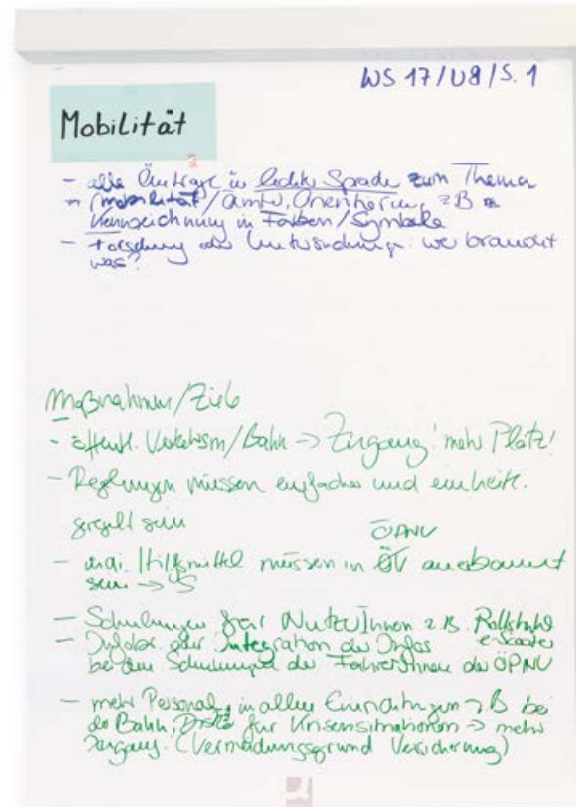 WS 17/U8/S. 1
Mobilität
- alle Anträge in leichter Sprache zum Thema
- Mobilität / Orientierung, z B
Kennzeichnung in Farben/Symbole
- Forschung oder Untersuchung: wer braucht
was?
Maßnahmen/Ziele
- öffentl. Verkehrsm/Bahn -> Zugang! mehr Platz!
- Reglungen müssen einfacher und einheitl.
geregelt sein
ÖPNV
- indi. Hilfsmittel müssen in ÖV anerkannt
sein -> S
- Schulungen für NutzerInnen z.B. Rollstuhl
e-Scooter
- Infobox oder Integration der Infos
bei den Schulungen der FahrerInnen der ÖPNV
- mehr Personal, in allen Einrichtungen z B bei
der Bahn, für Krisensituationen -> mehr
Zugang. (Vermeidungsgrund Versicherung)